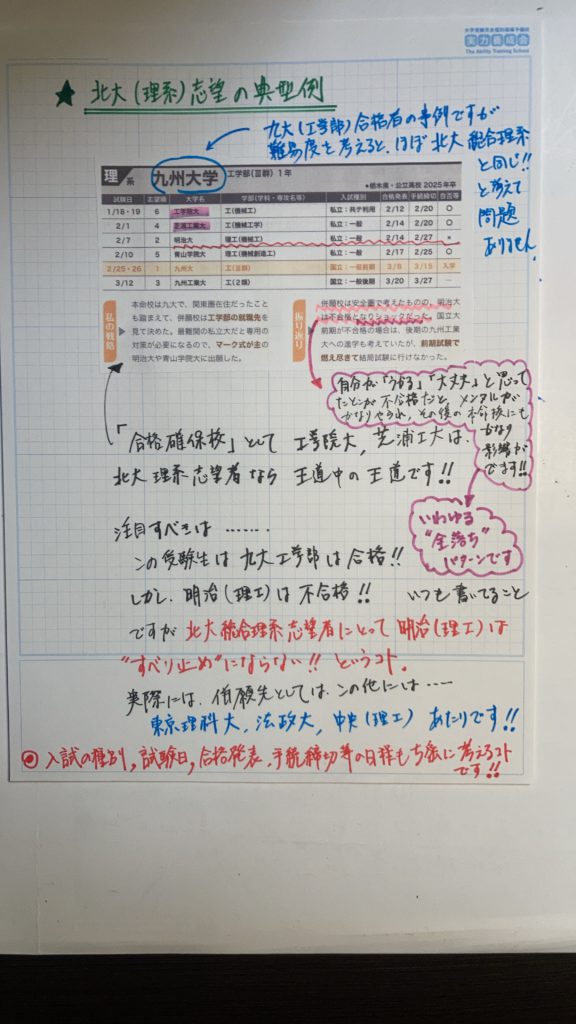 大学受験完全個別指導予備校
実力養成会
The Ability Training School
★ 北大(理系)志望の典型例
九大(工学部)合格者の事例ですが
難易度を考えると、ほぼ北大総合理系
と同じ!!
と考えて
問題
ありません
理系 九州大学 工学部(Ⅲ群) 1年
●栃木県・公立高校 2025年卒
試験日 志望順 大学名 学部(学科・専攻名等) 入試種別 合格発表 手続締切 合否等
1/18・19 6 工学院大 工(機械工) 私立:共テ利用 2/12 2/20 ○
2/1 4 芝浦工業大 工(機械工学) 私立:一般 2/14 2/20 ○
2/7 2 明治大 理工(機械工) 私立:一般 2/14 2/27 ×
2/10 5 青山学院大 理工(機械創造工) 私立:一般 2/17 2/25 ○
2/25・26 1 九州大 工(Ⅲ群) 国立:一般前期 3/8 3/15 入学
3/12 3 九州工業大 工(2類) 国立:一般後期 3/20 3/27 ―
私の戦略
本命校は九大で、関東圏在住だったこと
も踏まえて、併願校は工学部の就職先を
見て決めた。最難関の私立大だと専用の
対策が必要になるので、マーク式が主の
明治大や青山学院大に出願した。
振り返り
併願校は安全圏で考えたものの、明治大
は不合格となりショックだった。国立大
前期が不合格の場合は、後期の九州工業
大への進学も考えていたが、前期試験で
燃え尽きて結局試験に行けなかった。
自分が「うかる」「大丈夫」と思って
たとこが不合格だと、メンタルが
かなりやられ、その後の本命校にも
かなり
影響が
でます!!
「合格確保校」として 工学院大、芝浦工大は、
北大理系志望者なら 王道中の王道です!!
いわゆる
"全落ち"
パターンです
注目すべきは ……
この受験生は九大工学部は合格!!
しかし、明治(理工)は不合格!! いつも書いてること
ですが 北大総合理系志望者にとって 明治(理工)は
"すべり止め"にならない!! というコト。
実際には、併願先としては、この他には ……
東京理科大、法政大、中央(理工) あたりです!!
◎ 入試の種別、試験日、合格発表、手続締切等の日程も
に考えるコト
です!!